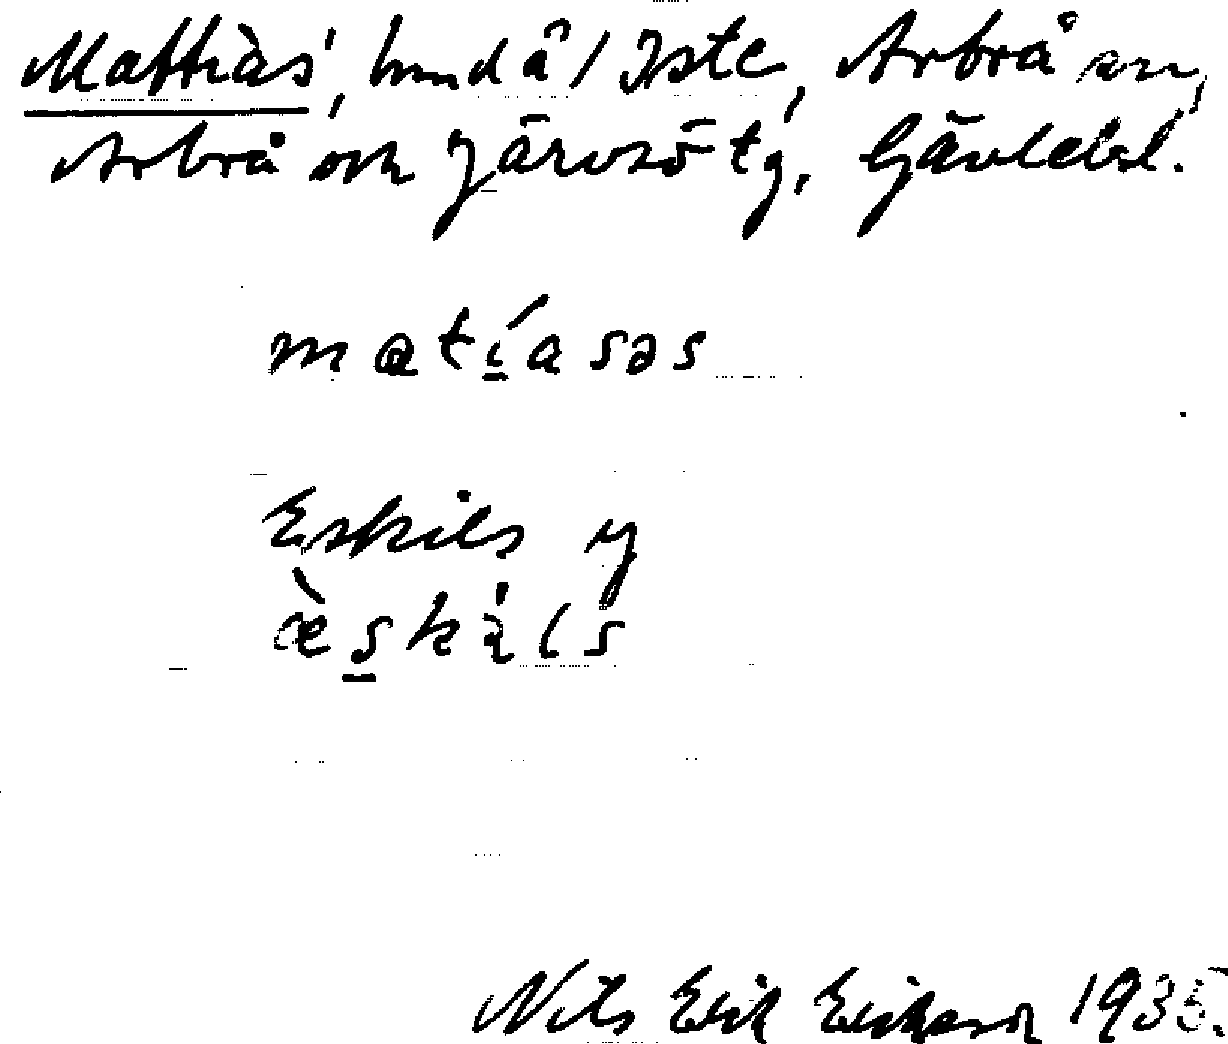 Mattias, hmd å / Iste, Arbrå sn,
Arbrå och Järvsö tg, Gävlebl.
matíasəs
Eskils y
æ̀skils
Nils Erik Erikson 1935.